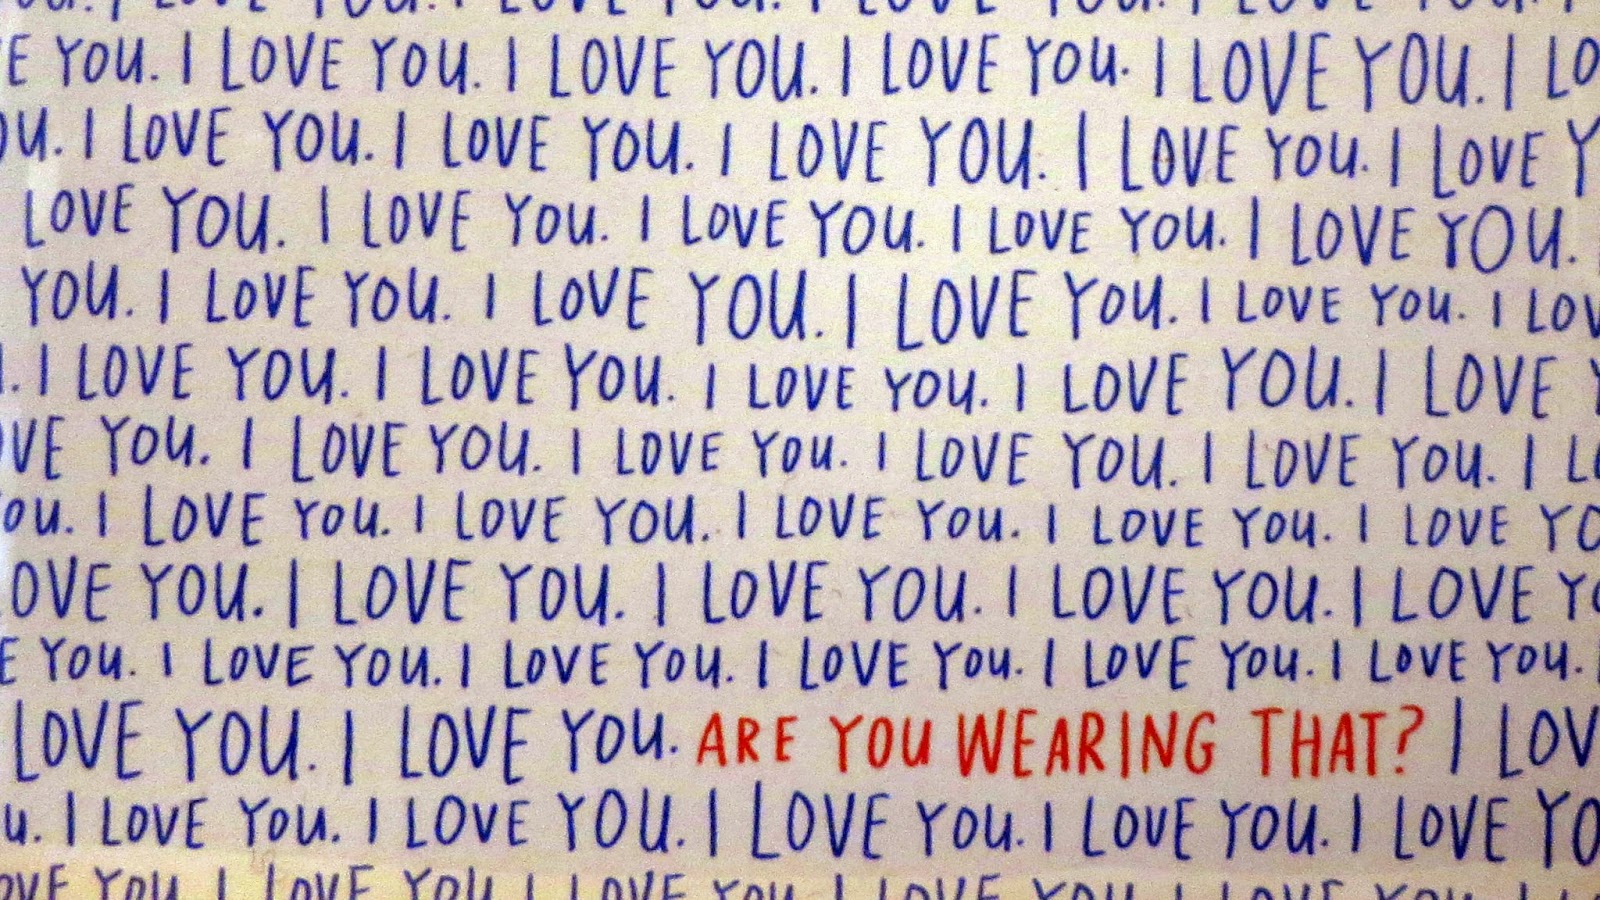 I LOVE YOU. I LOVE YOU. I LOVE YOU. I LOVE YOU. I LOVE
E YOU. I LOVE YOU. I LOVE YOU. I LOVE YOU. I LOVE YOU. I LO
OU. I LOVE YOU. I LOVE YOU. I LOVE YOU. I LOVE YOU. I LOVE Y
LOVE YOU. I LOVE YOU. I LOVE YOU. I LOVE YOU. I LOVE YOU.
YOU. I LOVE YOU. I LOVE YOU. I LOVE YOU. I LOVE YOU. I LOV
. I LOVE YOU. I LOVE YOU. I LOVE YOU. I LOVE YOU. I LOVE Y
VE YOU. I LOVE YOU. I LOVE YOU. I LOVE YOU. I LOVE YOU. I L
OU. I LOVE YOU. I LOVE YOU. I LOVE YOU. I LOVE YOU. I LOVE YO
OVE YOU. I LOVE YOU. I LOVE YOU. I LOVE YOU. I LOVE YO
E YOU. I LOVE YOU. I LOVE YOU. I LOVE YOU. I LOVE YOU. I LOVE YOU.
LOVE YOU. I LOVE YOU. ARE YOU WEARING THAT? I LOV
U. I LOVE YOU. I LOVE YOU. I LOVE YOU. I LOVE YOU. I LOVE YO
OVE YOU I LOVE YOU I LOVE YOU I LOVE YOU I LOVE YOU I